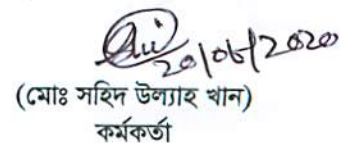 20/06/2020
(মোঃ সহিদ উল্যাহ খান)
কর্মকর্তা